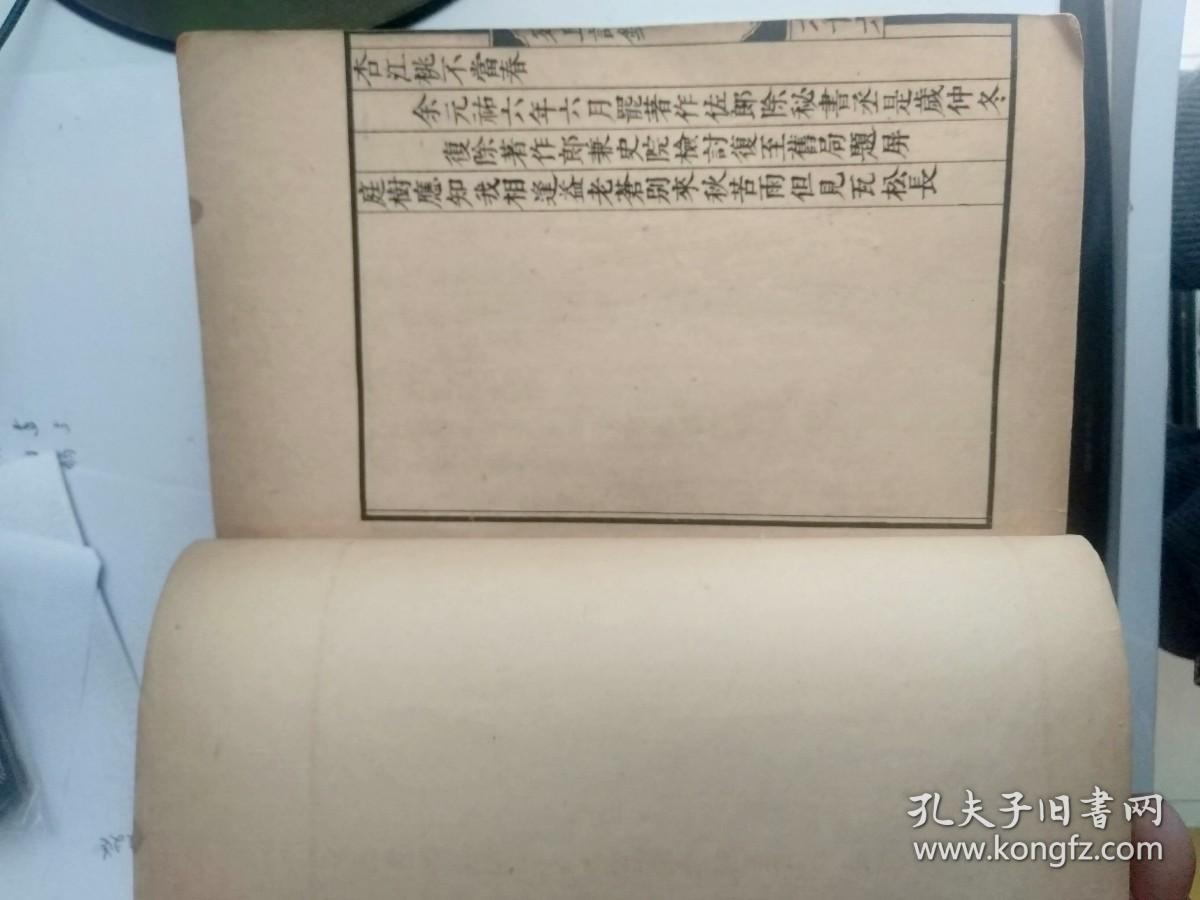 杏江桃不當春
余元祐六年六月罷著作佐郎除秘書丞是歲仲冬
復除著作郎兼史院檢討復至舊局題屏
庭樹應知我相逢益老蒼別來秋苦雨但見瓦松長
孔夫子旧书网
www.kongfz.com